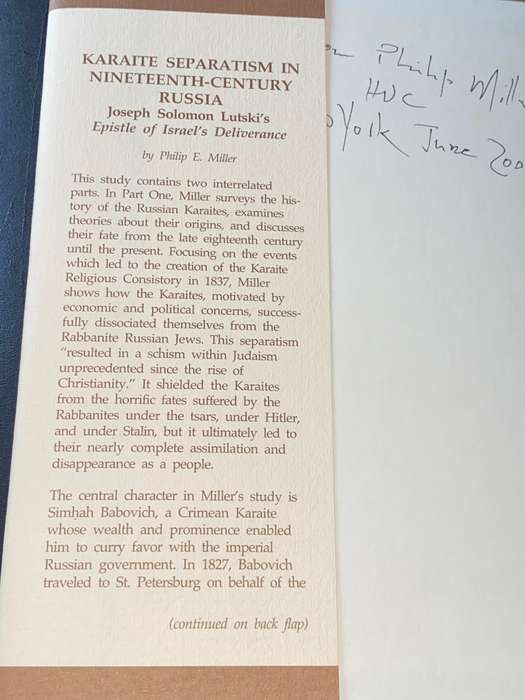 KARAITE SEPARATISM IN
NINETEENTH-CENTURY
RUSSIA
Joseph Solomon Lutski's
Epistle of Israel's Deliverance
by Philip E. Miller
This study contains two interrelated
parts. In Part One, Miller surveys the his-
tory of the Russian Karaites, examines
theories about their origins, and discusses
their fate from the late eighteenth century
until the present. Focusing on the events
which led to the creation of the Karaite
Religious Consistory in 1837, Miller
shows how the Karaites, motivated by
economic and political concerns, success-
fully dissociated themselves from the
Rabbanite Russian Jews. This separatism
"resulted in a schism within Judaism
unprecedented since the rise of
Christianity." It shielded the Karaites
from the horrific fates suffered by the
Rabbanites under the tsars, under Hitler,
and under Stalin, but it ultimately led to
their nearly complete assimilation and
disappearance as a people.
The central character in Miller's study is
Simḥah Babovich, a Crimean Karaite
whose wealth and prominence enabled
him to curry favor with the imperial
Russian government. In 1827, Babovich
traveled to St. Petersburg on behalf of the
(continued on back flap)
Philip Mill
HUC
York June 200